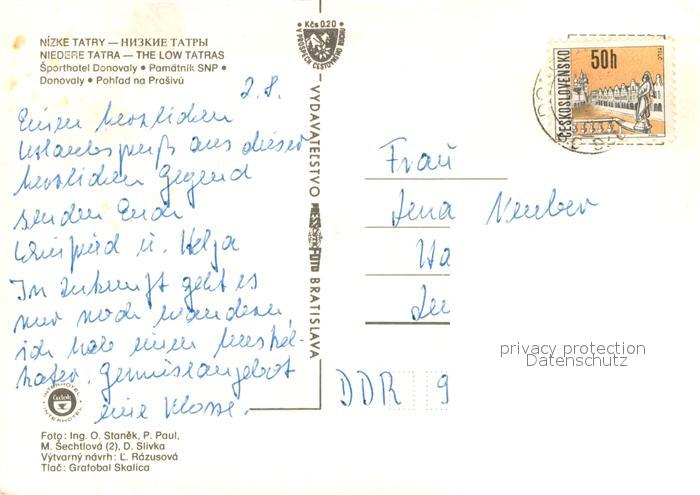 NÍZKE TATRY — НИЗКИЕ ТАТРЫ
NIEDERE TATRA — THE LOW TATRAS
Športhotel Donovaly • Pamätník SNP •
Donovaly • Pohľad na Prašivú
2.8.
Einen herzlichen
Urlaubsgruß aus dieser
herrlichen Gegend
senden Euch
u. Helja
In Zukunft geht es
nur noch wandern,
ich habe einen Muskel-
kater. Gemüseangebot
eine Klasse.
INTERHOTEL
Čedok
INTERHOTEL
Foto: Ing. O. Staněk, P. Paul,
M. Šechtlová (2), D. Slivka
Výtvarný návrh: Ľ. Rázusová
Tlač: Grafobal Skalica
Kčs 0.20
V PROSPECH CESTOVNÉHO RUCHU
VYDAVATEĽSTVO
BRATISLAVA
ČESKOSLOVENSKO
50h
TELČ
Frau
Jena Neuber
DDR 9
privacy protection
Datenschutz